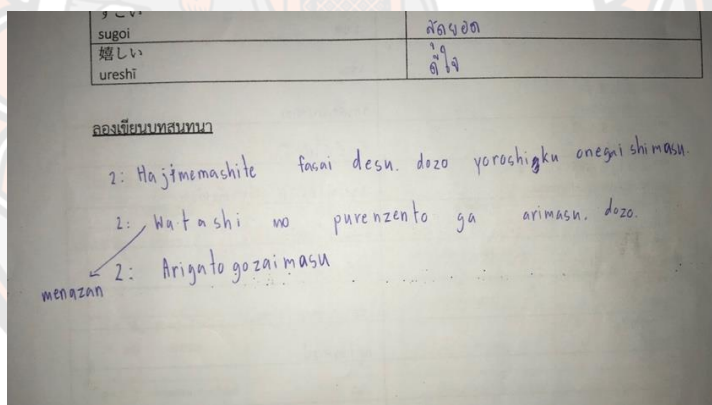 すごい
sugoi
สุดยอด
嬉しい
ureshī
ดีใจ
ลองเขียนบทสนทนา
2: Hajimemashite fasai desu. dozo yoroshigku onegai shimasu.
2: Watashi no purenzento ga arimasu. dozo.
2: Arigato gozaimasu
menazan